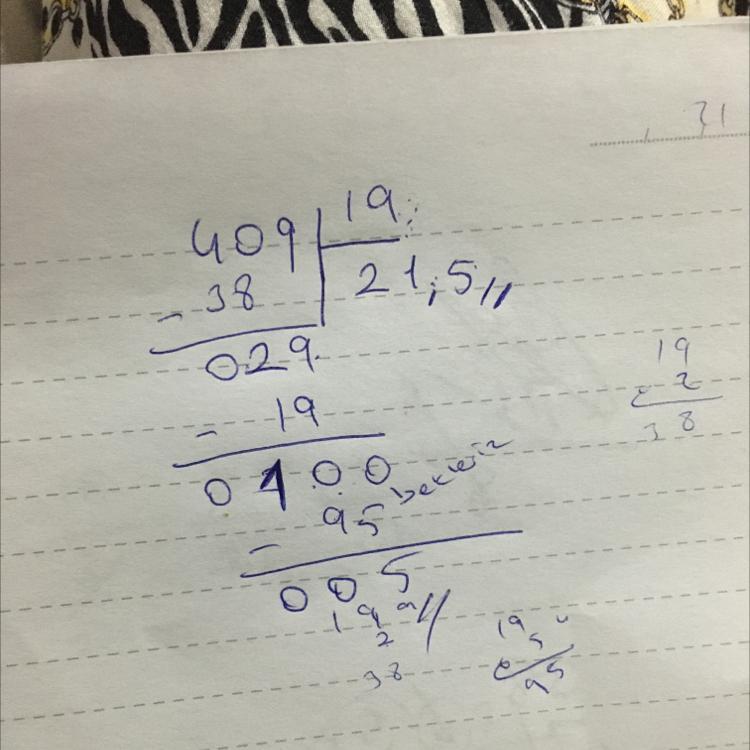 31
409 19
- 38 21,5
029
- 19
0100
- 95
005
19
2
38
19
2
38
19
5
95